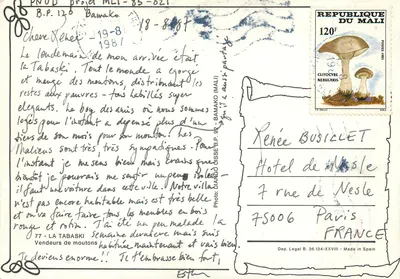 PNUD projet MLI-85-021
B.P. 120 Bamako
18-8-87
Chère Renée
-19-8
1987
Le lendemain de mon arrivée était
la Tabaski. Tout le monde a égorgé
et mangé des moutons, distribuant les
restes aux pauvres - tous habillés super
élégants. Le boy des amis où nous sommes
logés pour l'instant a dépensé plus d'un
tiers de son mois pour son mouton! Les
Maliens sont très très sympathiques. Pour
l'instant je me sens bien mais crains que
bientôt je pourrais me sentir un peu
il faut une voiture dans cette ville. Notre villa
n'est pas encore habitable mais est très belle
et on va faire faire tous les meubles en bois
rouge et rotin. J'ai été un peu malade la
semaine dernière mais suis
habituée maintenant et vais bien
Je deviens énorme!! Je t'embrasse bien fort,
Esther
77 - LA TABASKI
Vendeurs de moutons
Photo DAMADO CISSE B.P. 92 - BAMAKO (MALI)
REPUBLIQUE
DU MALI
120F
CLITOCYBE
NEBULARIS
Renée BUSILLET
Hotel de Nesle
7 rue de Nesle
75006 Paris
FRANCE
Dep. Legal B. 36.134-XXVIII - MCMLXXXIV